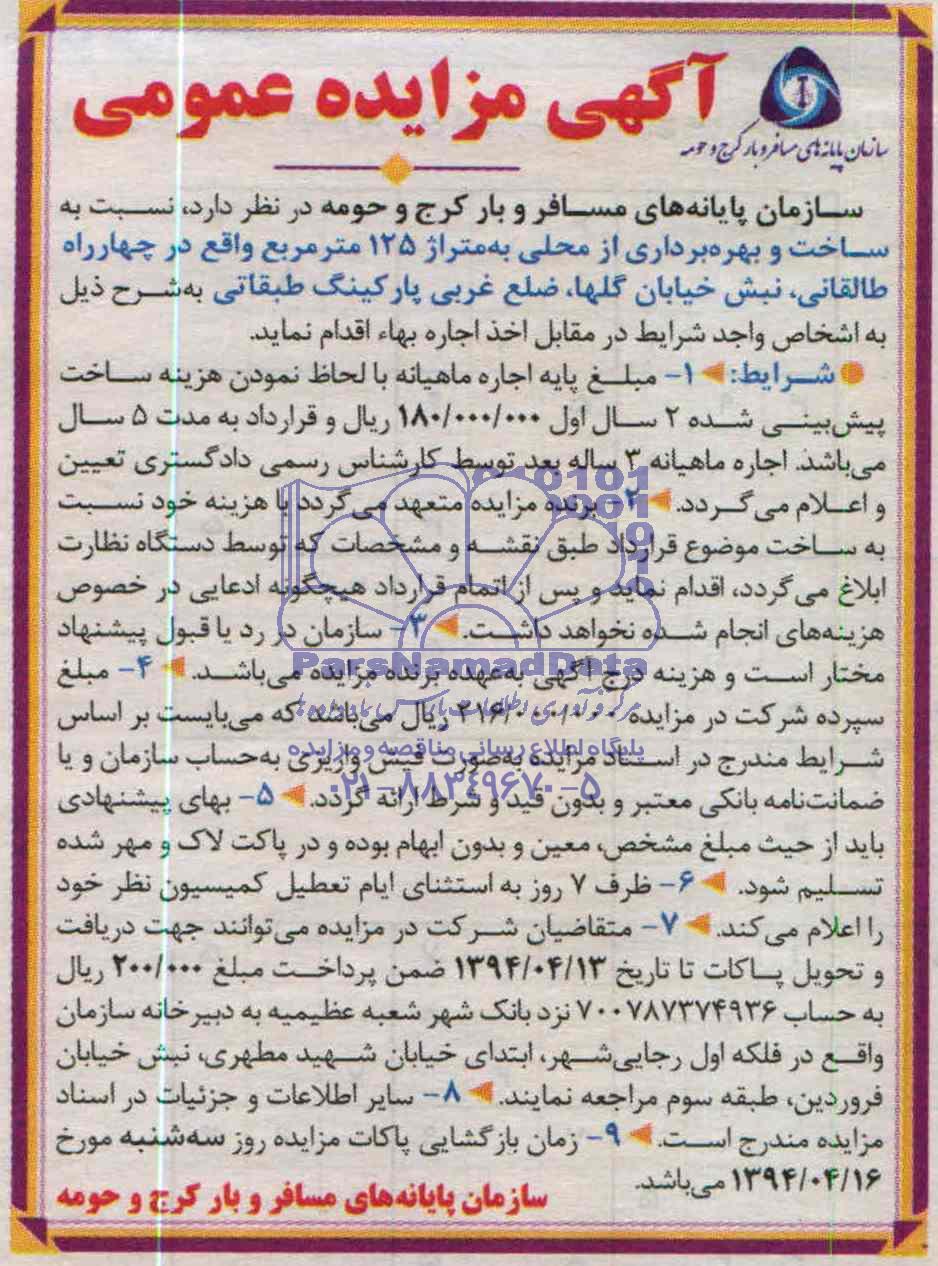 آگهی مزایده عمومی
سازمان پایانه‌های مسافر و بار کرج و حومه
سازمان پایانه‌های مسافر و بار کرج و حومه در نظر دارد، نسبت به
ساخت و بهره‌برداری از محلی به‌متراژ ۱۲۵ مترمربع واقع در چهارراه
طالقانی، نبش خیابان گلها، ضلع غربی پارکینگ طبقاتی به‌شرح ذیل
به اشخاص واجد شرایط در مقابل اخذ اجاره بهاء اقدام نماید.
شرایط: ۱- مبلغ پایه اجاره ماهیانه با لحاظ نمودن هزینه ساخت
پیش‌بینی شده ۲ سال اول ۱۸۰/۰۰۰/۰۰۰ ریال و قرارداد به مدت ۵ سال
می‌باشد. اجاره ماهیانه ۳ ساله بعد توسط کارشناس رسمی دادگستری تعیین
و اعلام می‌گردد. ۲- برنده مزایده متعهد می‌گردد با هزینه خود نسبت
به ساخت موضوع قرارداد طبق نقشه و مشخصات که توسط دستگاه نظارت
ابلاغ می‌گردد، اقدام نماید و پس از اتمام قرارداد هیچگونه ادعایی در خصوص
هزینه‌های انجام شده نخواهد داشت. ۳- سازمان در رد یا قبول پیشنهاد
مختار است و هزینه درج آگهی به‌عهده برنده مزایده می‌باشد. ۴- مبلغ
سپرده شرکت در مزایده ۲۱۶/۰۰۰/۰۰۰ ریال می‌باشد که می‌بایست بر اساس
شرایط مندرج در اسناد مزایده به‌صورت فیش واریزی به‌حساب سازمان و یا
ضمانت‌نامه بانکی معتبر و بدون قید و شرط ارائه گردد. ۵- بهای پیشنهادی
باید از حیث مبلغ مشخص، معین و بدون ابهام بوده و در پاکت لاک و مهر شده
تسلیم شود. ۶- ظرف ۷ روز به استثنای ایام تعطیل کمیسیون نظر خود
را اعلام می‌کند. ۷- متقاضیان شرکت در مزایده می‌توانند جهت دریافت
و تحویل پاکات تا تاریخ ۱۳۹۴/۰۴/۱۳ ضمن پرداخت مبلغ ۲۰۰/۰۰۰ ریال
به حساب ۷۰۰۷۸۷۳۷۴۹۳۶ نزد بانک شهر شعبه عظیمیه به دبیرخانه سازمان
واقع در فلکه اول رجایی‌شهر، ابتدای خیابان شهید مطهری، نبش خیابان
فروردین، طبقه سوم مراجعه نمایند. ۸- سایر اطلاعات و جزئیات در اسناد
مزایده مندرج است. ۹- زمان بازگشایی پاکات مزایده روز سه‌شنبه مورخ
۱۳۹۴/۰۴/۱۶ می‌باشد.
سازمان پایانه‌های مسافر و بار کرج و حومه
ParsNamadData
پایگاه اطلاع رسانی مناقصه و مزایده
۰۲۱-۸۸۳۴۹۶۷۰-۵